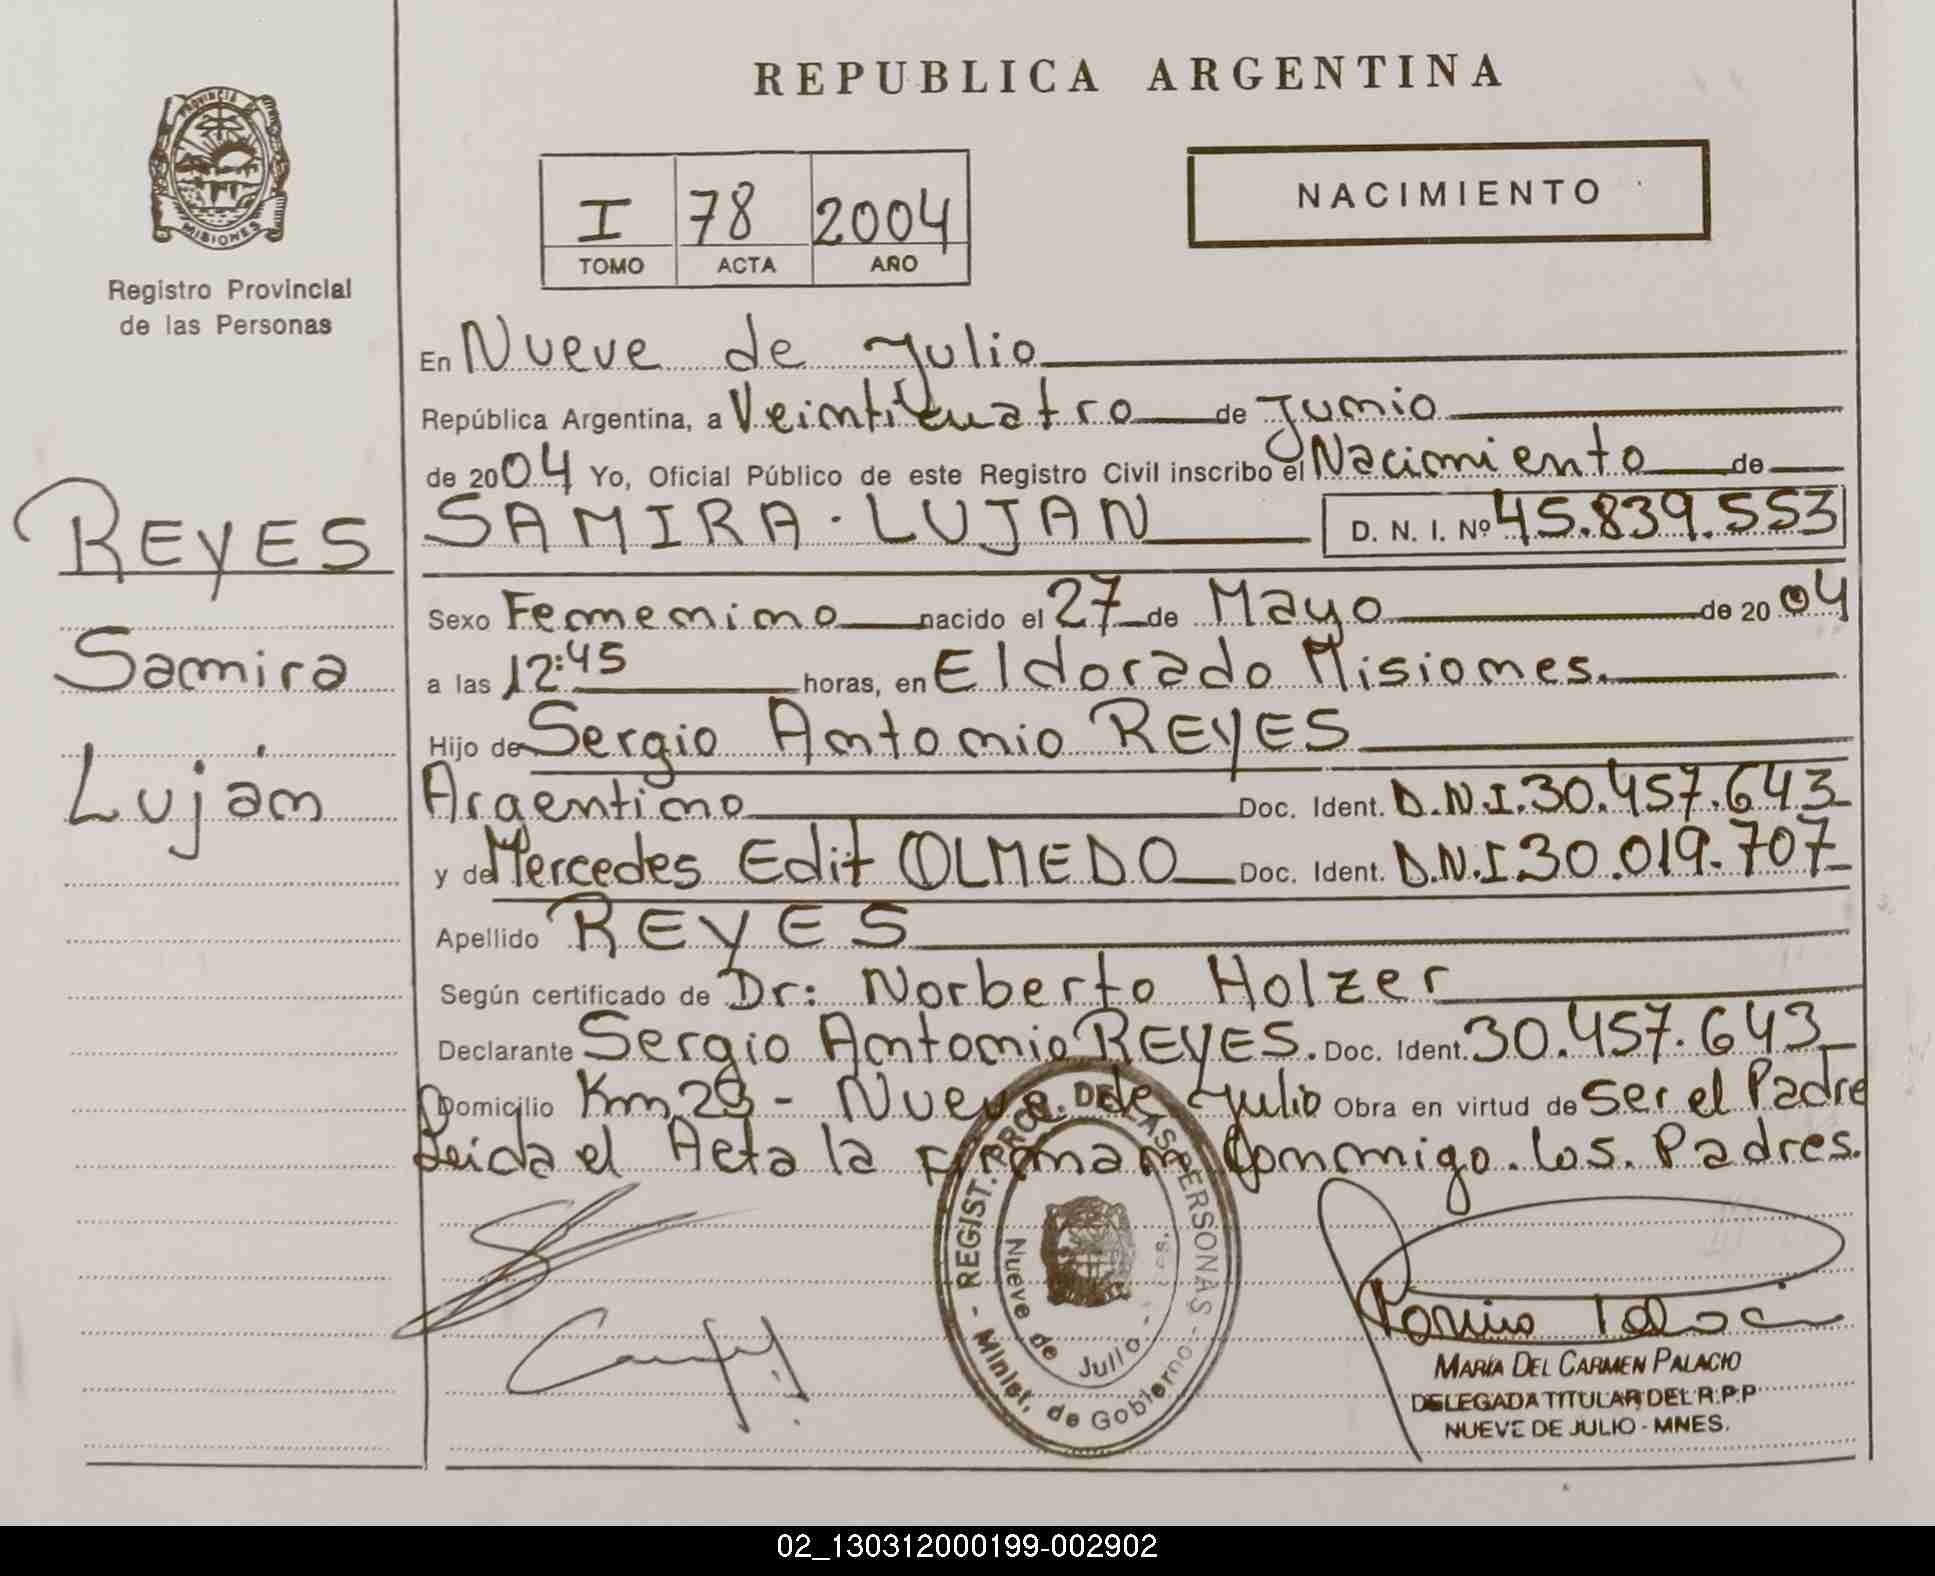 REPUBLICA ARGENTINA
PROVINCIA DE
MISIONES
Registro Provincial
de las Personas
NACIMIENTO
I 78 2004
TOMO ACTA AÑO
En Nueve de Julio
República Argentina, a Veinticuatro de Junio
de 2004 Yo, Oficial Público de este Registro Civil inscribo el Nacimiento de
SAMIRA LUJAN D. N. I. Nº 45.839.553
REYES
Samira
Luján
Sexo Femenino nacido el 27 de Mayo de 2004
a las 12:45 horas, en Eldorado Misiones.
Hijo de Sergio Antonio REYES
Argentino Doc. Ident. D.N.I.30.457.643
y de Mercedes Edit OLMEDO Doc. Ident. D.N.I.30.019.707
Apellido REYES
Según certificado de Dr: Norberto Holzer
Declarante Sergio Antonio REYES. Doc. Ident. 30.457.643
Domicilio Km 29 - Nueve de Julio Obra en virtud de ser el Padre
Leida el Acta la firman Conmigo. los. Padres.
- REGIST. PROV. DE LAS PERSONAS -
Minist. de Gobierno
Nueve de Julio -
MARÍA DEL CARMEN PALACIO
DELEGADA TITULAR DEL R.P.P
NUEVE DE JULIO - MNES.
02_130312000199-002902